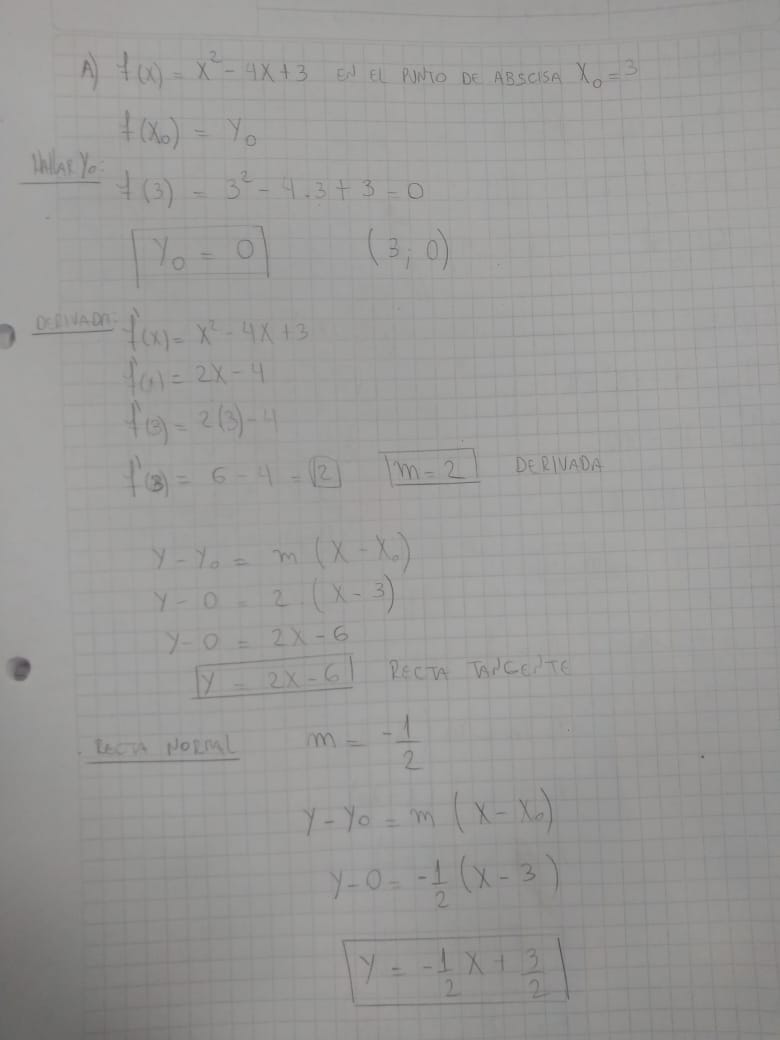 A) f(x) = x² - 4x + 3 EN EL PUNTO DE ABSCISA X₀ = 3
f(x₀) = Y₀
HALLAR Y₀:
f(3) = 3² - 4.3 + 3 = 0
Y₀ = 0 (3; 0)
DERIVADA: f'(x) = x² - 4x + 3
f'(x) = 2x - 4
f'(3) = 2(3) - 4
f'(3) = 6 - 4 = 2 m = 2 DERIVADA
Y - Y₀ = m (X - X₀)
Y - 0 = 2 . (X - 3)
Y - 0 = 2X - 6
Y = 2X - 6 RECTA TANGENTE
RECTA NORMAL m = -1/2
Y - Y₀ = m (X - X₀)
Y - 0 = -1/2 (X - 3)
Y = -1/2 X + 3/2